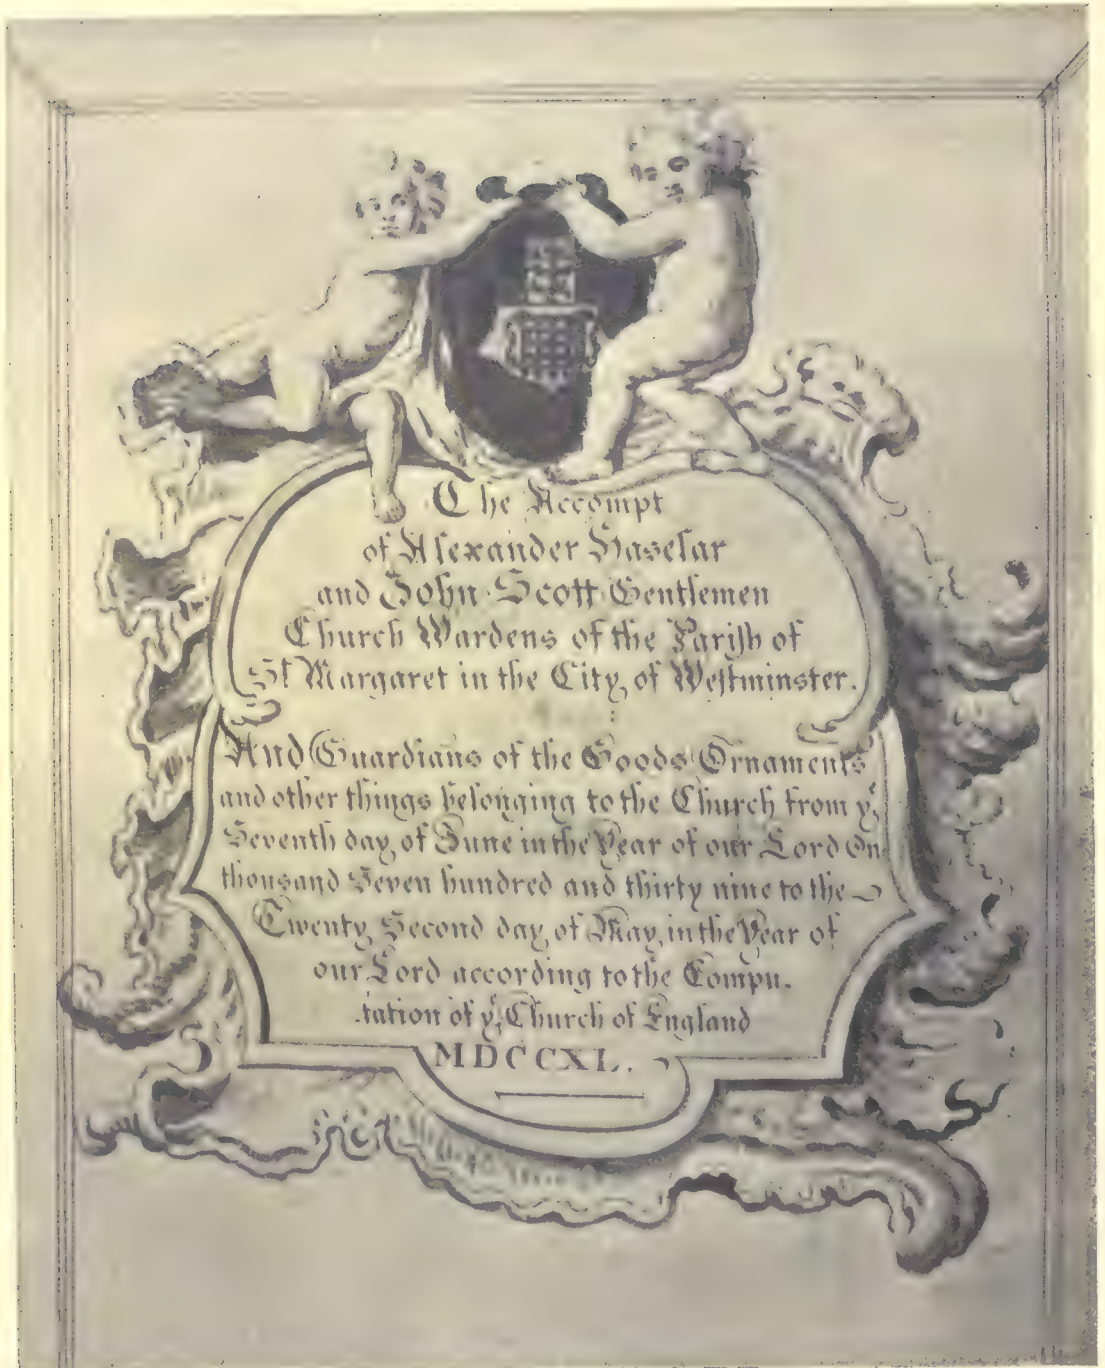 The Accompt
of Alexander Haselar
and John Scott Gentlemen
Church Wardens of the Parish of
St Margaret in the City of Westminster.
And Guardians of the Goods Ornaments
and other things belonging to the Church from ye
Seventh day of June in the Year of our Lord One
thousand Seven hundred and thirty nine to the
Twenty Second day of May in the Year of
our Lord according to the Compu-
tation of ye Church of England
MDCCXL.